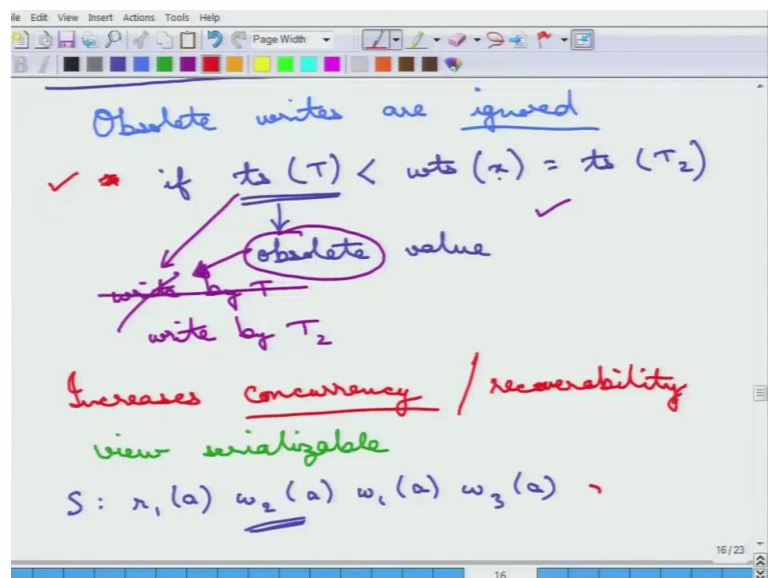 ile Edit View Insert Actions Tools Help
Page Width
B I
Obsolete writes are ignored
if ts (T) < wts (x) = ts (T2)
obsolete value
write by T
write by T2
Increases concurrency / recoverability
view serializable
S : r1 (a) w2 (a) w1 (a) w3 (a)
16/23
16